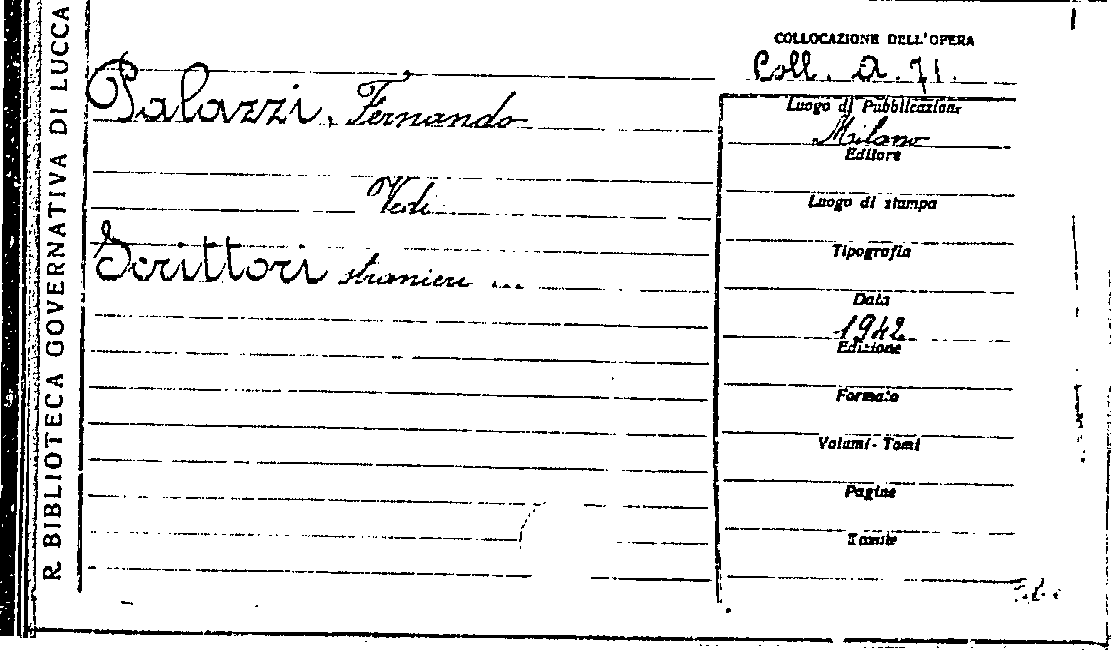 R. BIBLIOTECA GOVERNATIVA DI LUCCA
COLLOCAZIONE DELL'OPERA
Coll. A. 71.
Palazzi, Fernando
Vedi
Scrittori stranieri ...
Luogo di Pubblicazione
Milano
Editore
Luogo di stampa
Tipografia
Data
1942
Edizione
Formato
Volumi - Tomi
Pagine